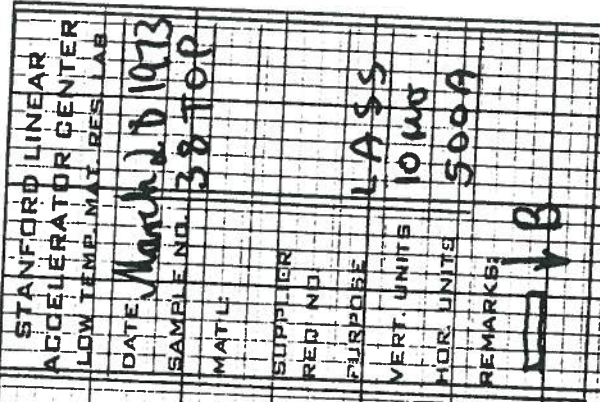 STANFORD LINEAR
ACCELERATOR CENTER
LOW TEMP. MAT. RES. LAB
DATE March 20 1973
SAMPLE NO. 38 TOP
MAT'L:
SUPPLIER
REQ NO.
PURPOSE LASS
VERT. UNITS 10 μυ
HOR. UNITS 500A
REMARKS:
B